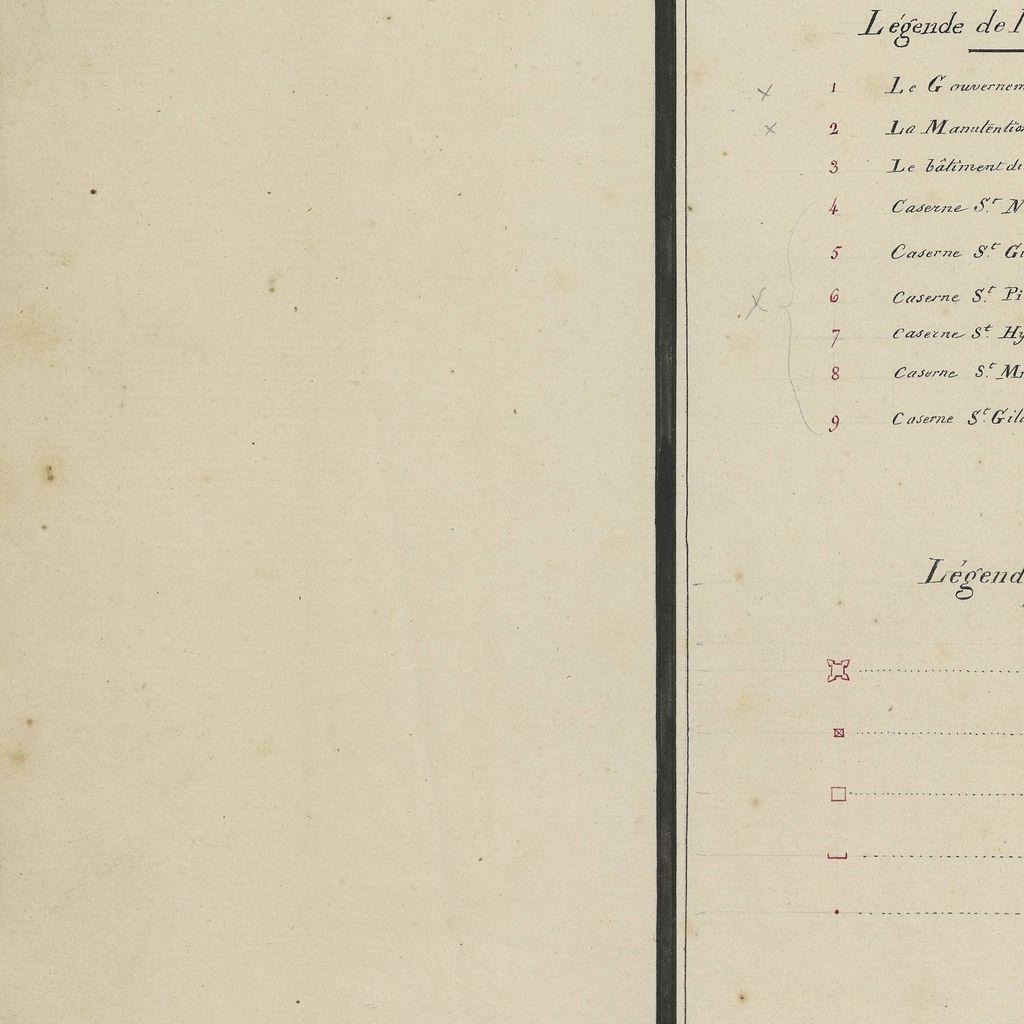 Légende de l
1 Le Gouvernem
2 La Manutentio
3 Le bâtiment du
4 Caserne S.t N
5 Caserne S.t Gi
6 Caserne S.t Pi
7 Caserne S.t Hy
8 Caserne S.t M
9 Caserne S.t Gild
Légend